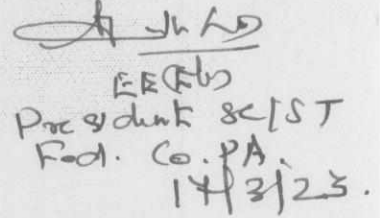 EE (Eb)
President SC/ST
Fed. Co. PA.
17/3/23.